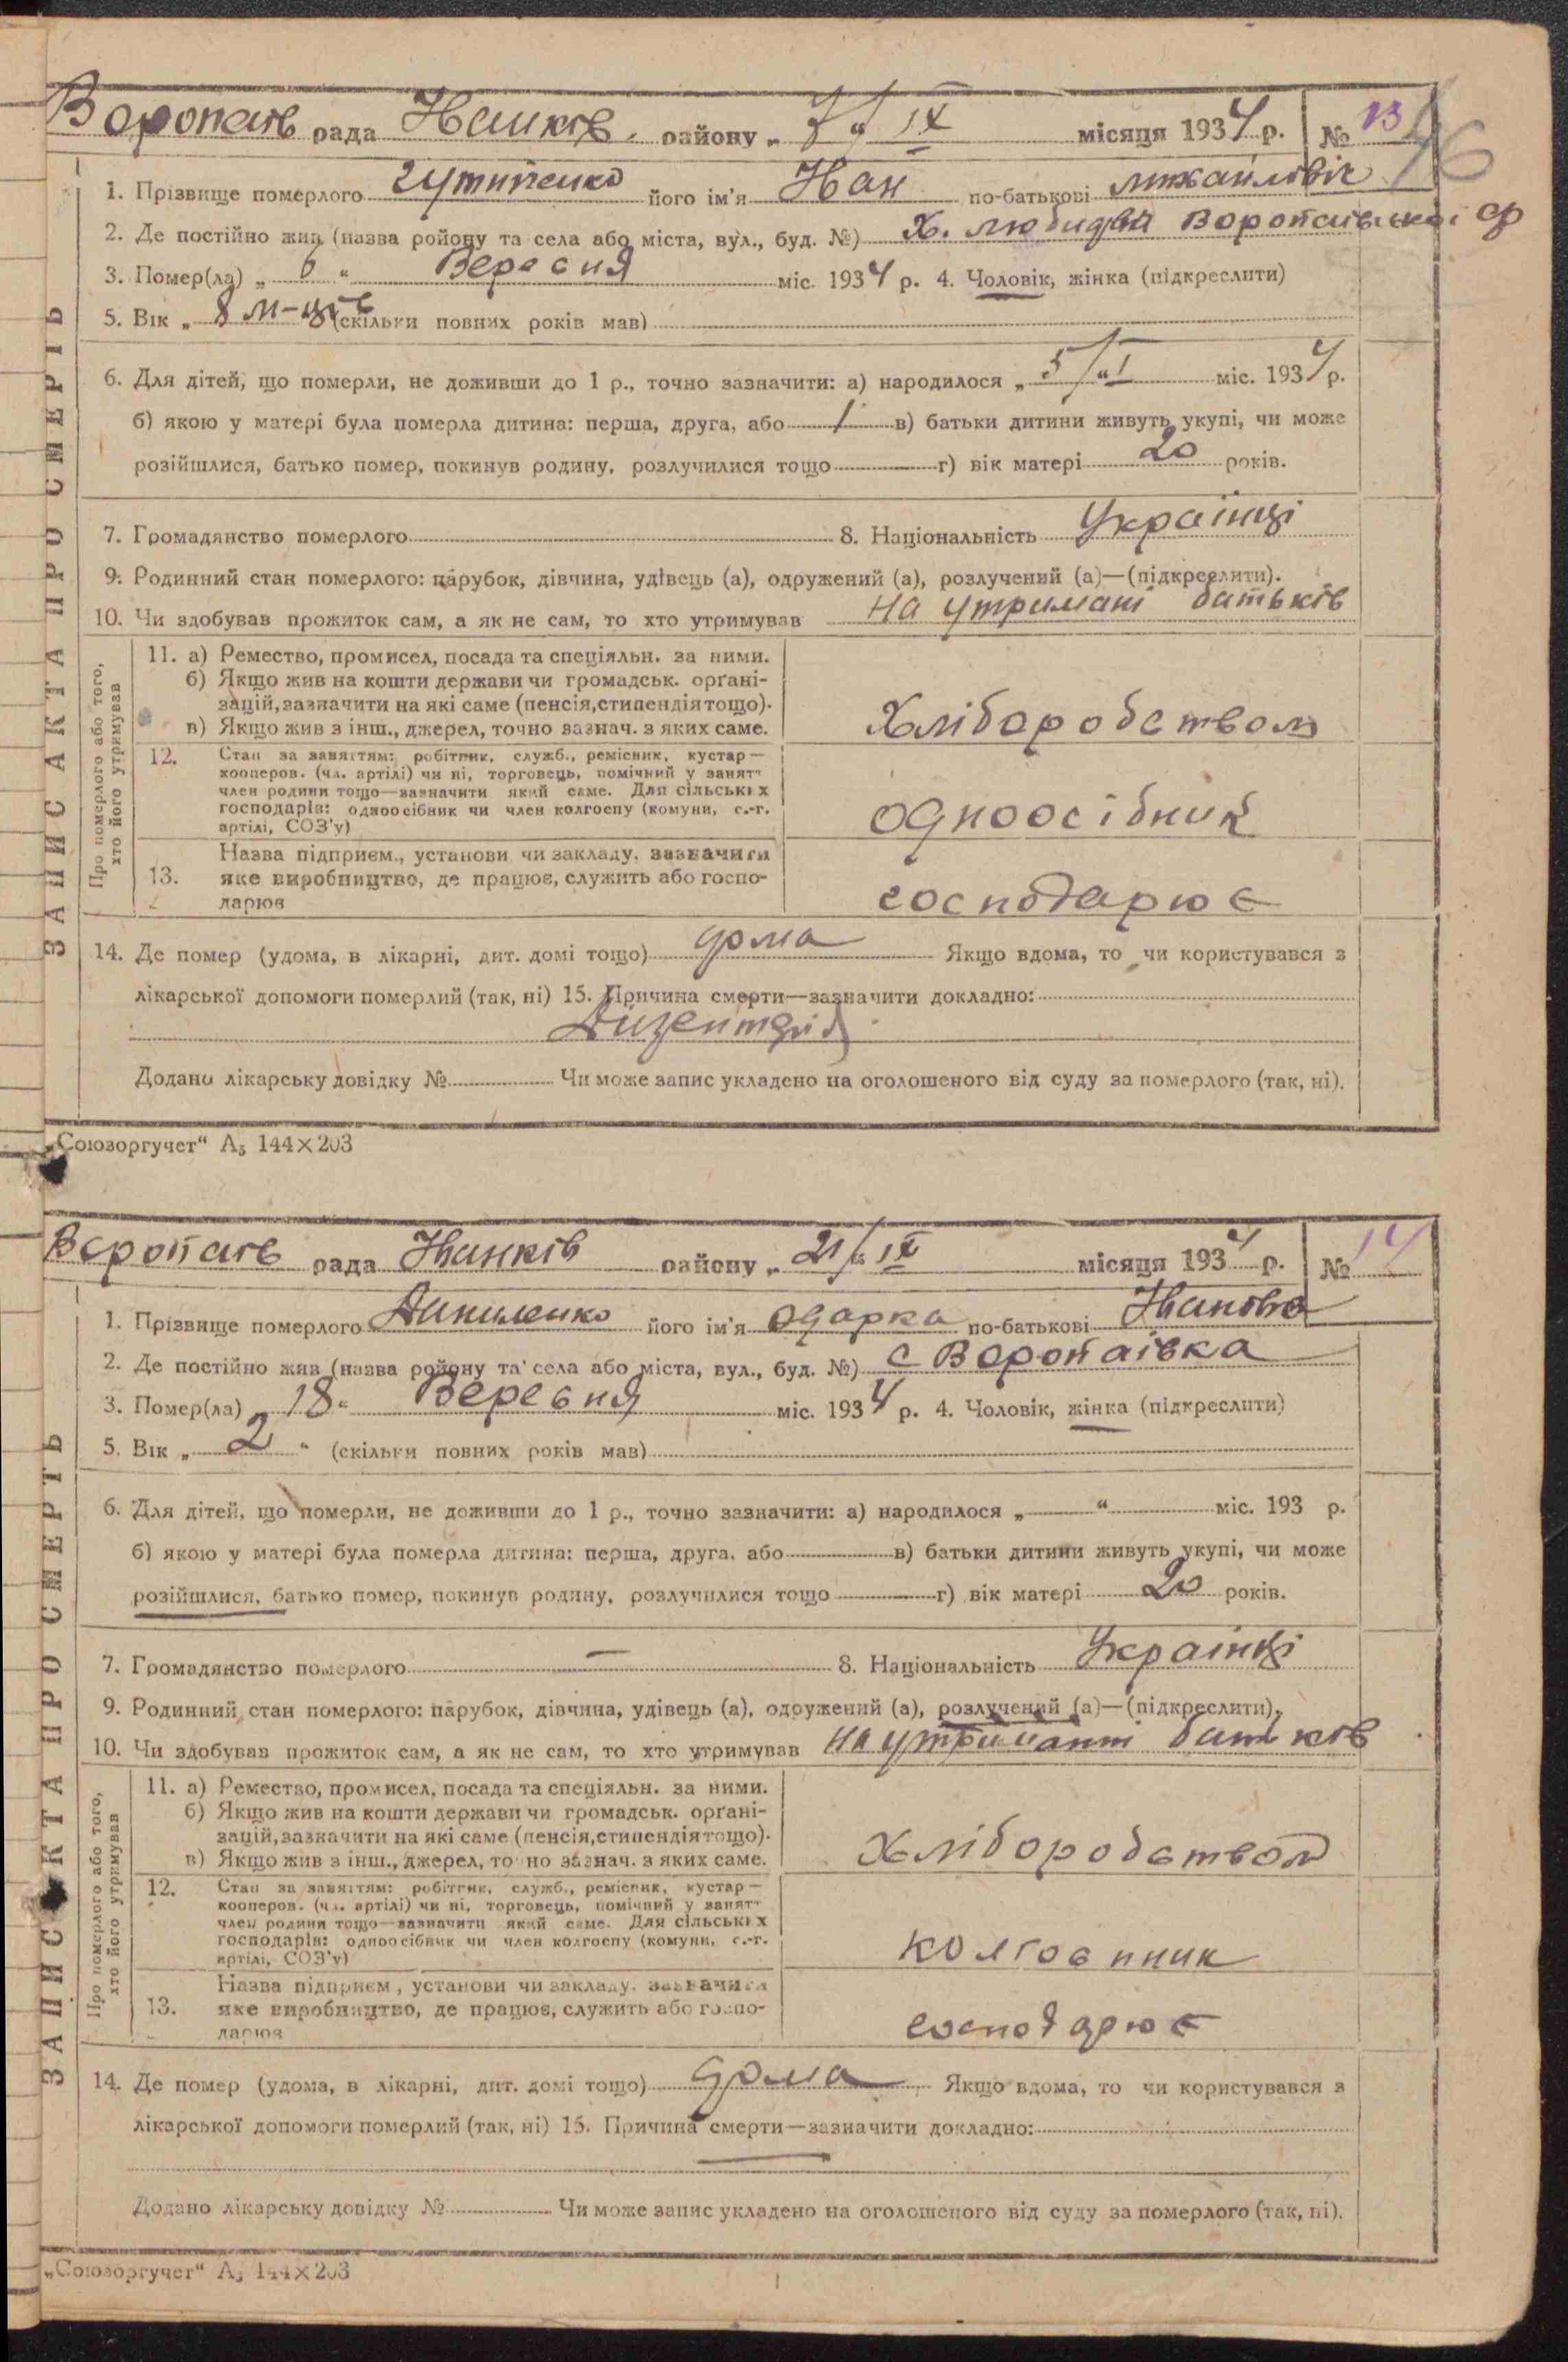 Воропаїв рада Іванків. району „ 7 “ IX місяця 1934 р. № 13
16
1. Прізвище померлого його ім'я Іван по-батькові Михайловіч
2. Де постійно жив (назва ройону та села або міста, вул., буд. №) Х. Воропаївської
3. Помер(ла) „ 6 “ Вересня міс. 1934 р. 4. Чоловік, жінка (підкреслити)
5. Вік „ 8 м-ців (скільки повних років мав)
6. Для дітей, що померли, не доживши до 1 р., точно зазначити: а) народилося „ 5/“ I міс. 1934 р.
б) якою у матері була померла дитина: перша, друга, або 1 в) батьки дитини живуть укупі, чи може
розійшлися, батько помер, покинув родину, розлучилися тощо г) вік матері 20 років.
7. Громадянство померлого 8. Національність Українці
9. Родинний стан померлого: парубок, дівчина, удівець (а), одружений (а), розлучений (а)—(підкреслити).
10. Чи здобував прожиток сам, а як не сам, то хто утримував на утримані батьків
11. а) Ремество, промисел, посада та спеціяльн. за ними.
б) Якщо жив на кошти держави чи громадськ. орґані-
зацій, зазначити на які саме (пенсія, стипендія тощо).
в) Якщо жив з інш., джерел, точно зазнач. з яких саме.
Хліборобством
12. Стан за заняттям: робітник, служб., ремісник, кустар—
кооперов. (чл. артілі) чи ні, торговець, помічний у занятт
член родини тощо—зазначити який саме. Для сільських
господарів: одноосібник чи член колгоспу (комуни, с.-г.
артілі, СОЗ'у)
одноосібник
13. Назва підприєм., установи чи закладу, зазначити
яке виробництво, де працює, служить або госпо-
дарює
господарює
Про померлого або того,
хто його утримував
14. Де помер (удома, в лікарні, дит. домі тощо) дома Якщо вдома, то чи користувався з
лікарської допомоги померлий (так, ні) 15. Причина смерти—зазначити докладно:
Дизентерія
Додано лікарську довідку № Чи може запис укладено на оголошеного від суду за померлого (так, ні).
ЗАПИС АКТА ПРО СМЕРТЬ
„Союзоргучет“ А₅ 144×203
Воропаїв рада Іванків району „ 21/“ IX місяця 1934 р. № 14
1. Прізвище померлого Даниленко його ім'я Одарка по-батькові Івановна
2. Де постійно жив (назва ройону та села або міста, вул., буд. №) с Воропаівка
3. Помер(ла) 18 “ Вересня міс. 1934 р. 4. Чоловік, жінка (підкреслити)
5. Вік „ 2 “ (скільки повних років мав)
6. Для дітей, що померли, не доживши до 1 р., точно зазначити: а) народилося „ “ міс. 193 р.
б) якою у матері була померла дитина: перша, друга, або в) батьки дитини живуть укупі, чи може
розійшлися, батько помер, покинув родину, розлучилися тощо г) вік матері 20 років.
7. Громадянство померлого — 8. Національність Українці
9. Родинний стан померлого: парубок, дівчина, удівець (а), одружений (а), розлучений (а)—(підкреслити).
10. Чи здобував прожиток сам, а як не сам, то хто утримував на утриманні батьків
11. а) Ремество, промисел, посада та спеціяльн. за ними.
б) Якщо жив на кошти держави чи громадськ. орґані-
зацій, зазначити на які саме (пенсія, стипендія тощо).
в) Якщо жив з інш., джерел, точно зазнач. з яких саме.
Хліборобством
12. Стан за заняттям: робітник, служб., ремісник, кустар—
кооперов. (чл. артілі) чи ні, торговець, помічний у занятт
член родини тощо—зазначити який саме. Для сільських
господарів: одноосібник чи член колгоспу (комуни, с.-г.
артілі, СОЗ'у)
колгоспник
13. Назва підприєм., установи чи закладу, зазначити
яке виробництво, де працює, служить або госпо-
дарює
господарює
Про померлого або того,
хто його утримував
14. Де помер (удома, в лікарні, дит. домі тощо) дома Якщо вдома, то чи користувався з
лікарської допомоги померлий (так, ні) 15. Причина смерти—зазначити докладно:
—
Додано лікарську довідку № Чи може запис укладено на оголошеного від суду за померлого (так, ні).
ЗАПИС АКТА ПРО СМЕРТЬ
„Союзоргучет“ А₅ 144×203